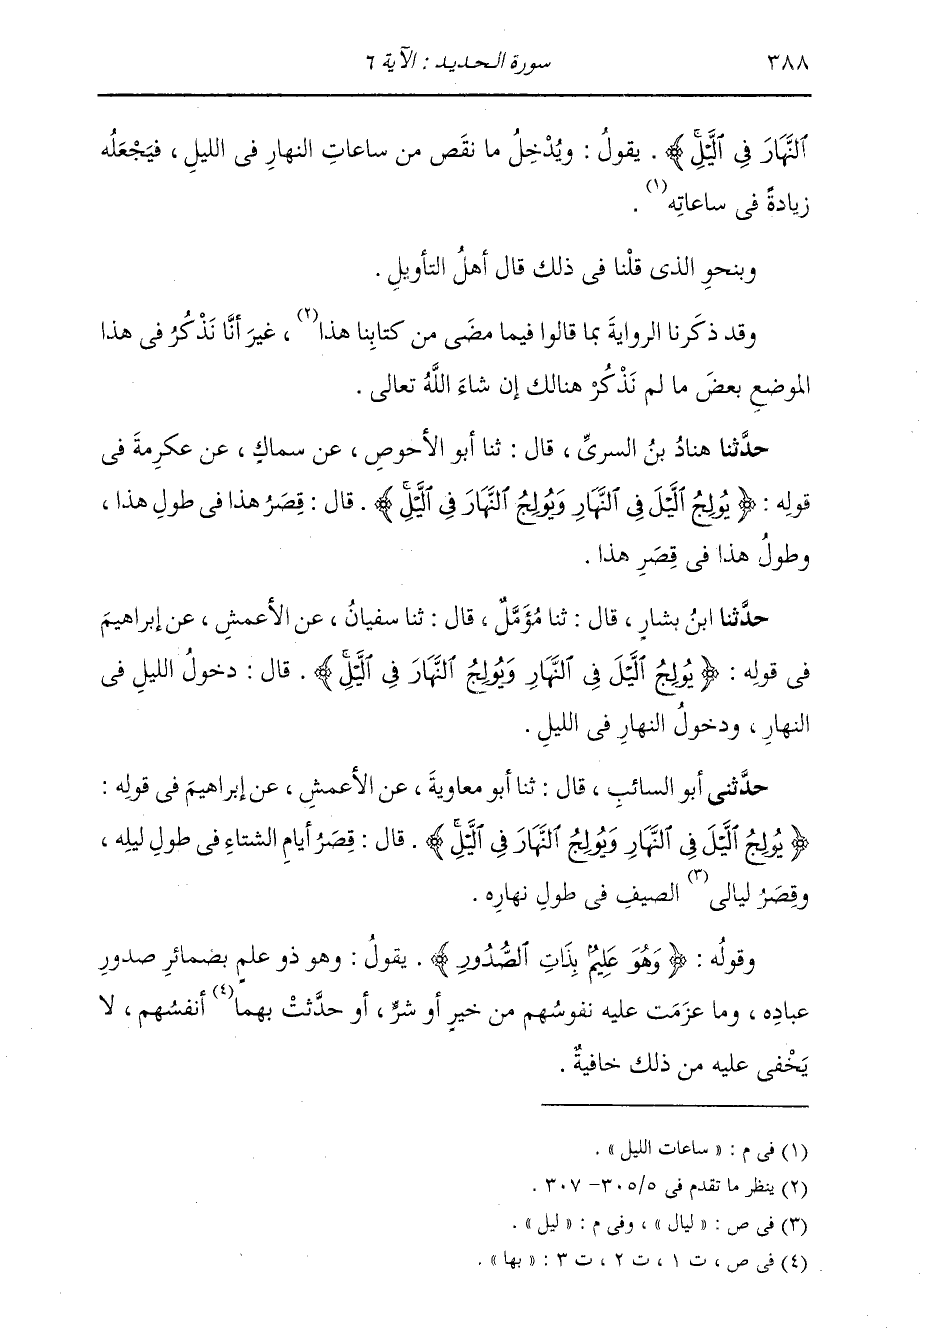 ٣٨٨ سورة الحديد : الآية ٦
ٱلنَّهَارَ فِي ٱلَّيْلِۚ ﴾ . يقولُ : ويُدْخِلُ ما نقَص من ساعاتِ النهارِ فى الليلِ ، فيَجْعَلُه
زيادةً فى ساعاتِه(١) .
وبنحوِ الذى قلْنا فى ذلك قال أهلُ التأويلِ .
وقد ذكَرنا الروايةَ بما قالوا فيما مضَى من كتابِنا هذا(٢) ، غيرَ أنَّا نَذْكُرُ فى هذا
الموضعِ بعضَ ما لم نَذْكُرْ هنالك إن شاءَ اللَّهُ تعالى .
حدَّثنا هنادُ بنُ السرىِّ ، قال : ثنا أبو الأحوصِ ، عن سماكٍ ، عن عكرِمةَ فى
قولِه : ﴿ يُولِجُ ٱلَّيْلَ فِي ٱلنَّهَارِ وَيُولِجُ ٱلنَّهَارَ فِي ٱلَّيْلِۚ ﴾ . قال : قِصَرُ هذا فى طولِ هذا ،
وطولُ هذا فى قِصَرِ هذا .
حدَّثنا ابنُ بشارٍ ، قال : ثنا مُؤَمَّلٌ ، قال : ثنا سفيانُ ، عن الأعمشِ ، عن إبراهيمَ
فى قولِه : ﴿ يُولِجُ ٱلَّيْلَ فِي ٱلنَّهَارِ وَيُولِجُ ٱلنَّهَارَ فِي ٱلَّيْلِۚ ﴾ . قال : دخولُ الليلِ فى
النهارِ ، ودخولُ النهارِ فى الليلِ .
حدَّثنى أبو السائبِ ، قال : ثنا أبو معاويةَ ، عن الأعمشِ ، عن إبراهيمَ فى قولِه :
﴿ يُولِجُ ٱلَّيْلَ فِي ٱلنَّهَارِ وَيُولِجُ ٱلنَّهَارَ فِي ٱلَّيْلِۚ ﴾ . قال : قِصَرُ أيامِ الشتاءِ فى طولِ ليلِه ،
وقِصَرُ ليالى(٣) الصيفِ فى طولِ نهارِه .
وقولُه : ﴿ وَهُوَ عَلِيمٌۢ بِذَاتِ ٱلصُّدُورِ ﴾ . يقولُ : وهو ذو علمٍ بضمائرِ صدورِ
عبادِه ، وما عزَمَت عليه نفوسُهم من خيرٍ أو شرٍّ ، أو حدَّثتْ بهما(٤) أنفسُهم ، لا
يَخْفى عليه من ذلك خافيةٌ .
(١) فى م : « ساعات الليل » .
(٢) ينظر ما تقدم فى ٥/٣٠٥- ٣٠٧ .
(٣) فى ص : « ليال » ، وفى م : « ليل » .
(٤) فى ص ، ت ١ ، ت ٢ ، ت ٣ : « بها » .